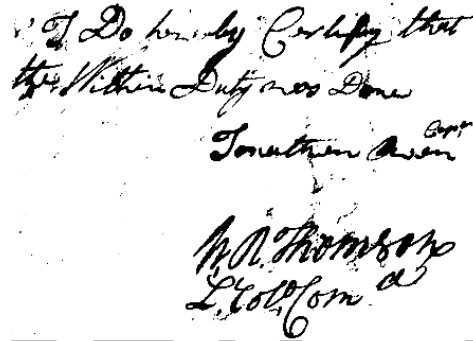 I Do hereby Certify that
the Within Duty was Done
Jonathan Owen Capt
W. R. Thomson
L. Colo. Comd